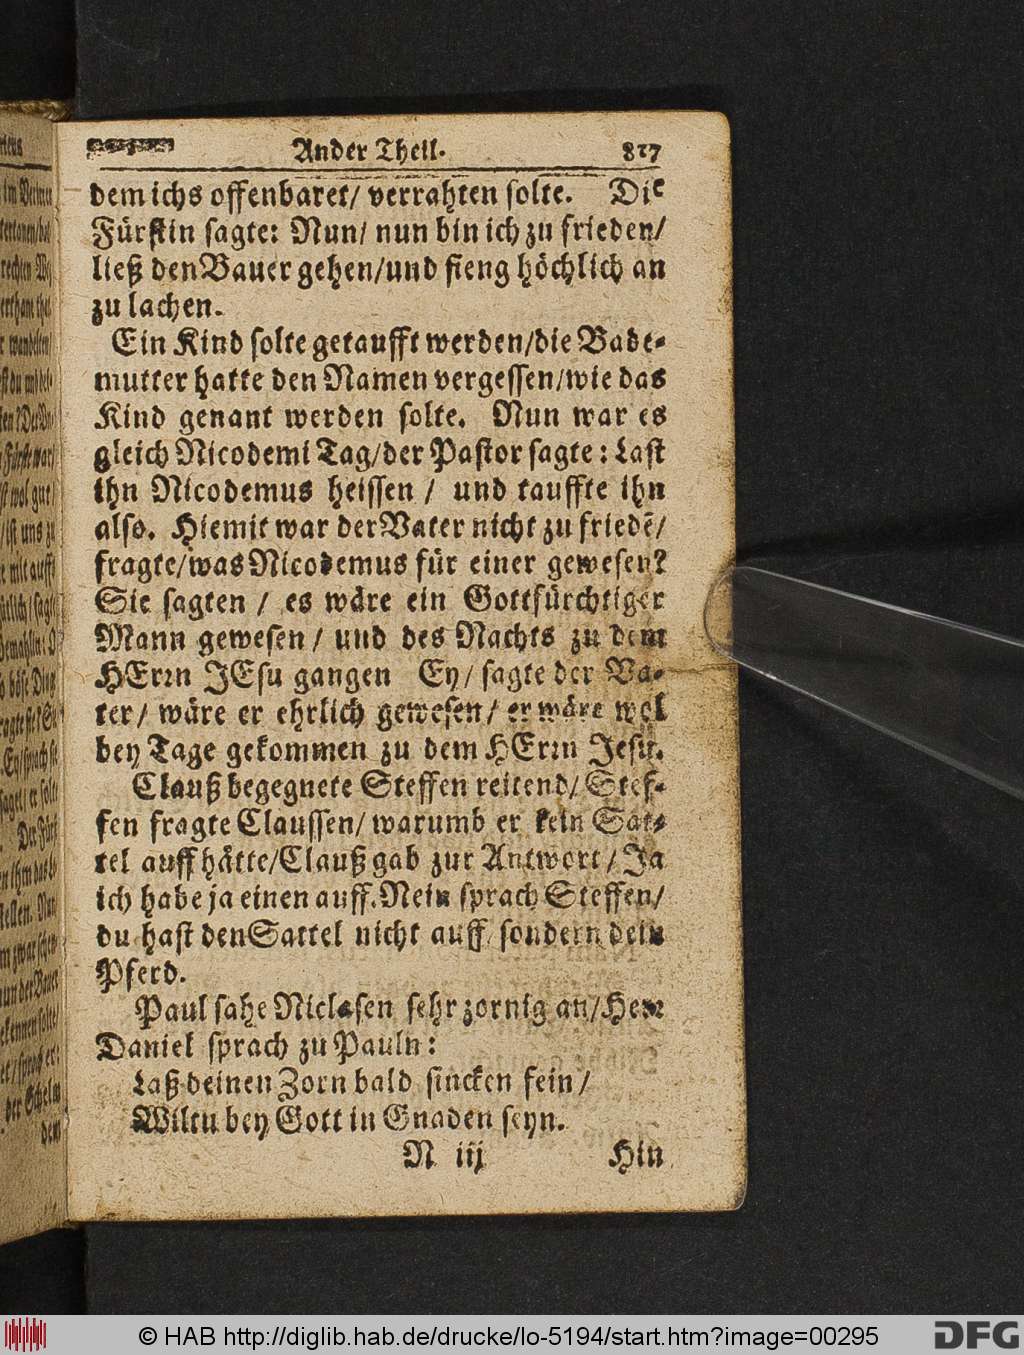 Ander Theil. 817
dem ichs offenbaret/ verrahten solte. Die
Fürstin sagte: Nun/ nun bin ich zu frieden/
ließ den Bauer gehen/und fieng höchlich an
zu lachen.
Ein Kind solte getaufft werden/die Bade-
mutter hatte den Namen vergessen/wie das
Kind genant werden solte. Nun war es
gleich Nicodemi Tag/der Pastor sagte: Last
ihn Nicodemus heissen / und tauffte ihn
also. Hiemit war der Vater nicht zu friedẽ/
fragte/was Nicodemus für einer gewesen?
Sie sagten / es wäre ein Gottfürchtiger
Mann gewesen / und des Nachts zu dem
HErrn JEsu gangen Ey/ sagte der Va-
ter/ wäre er ehrlich gewesen/ er wäre wol
bey Tage gekommen zu dem HErrn Jesu.
Clauß begegnete Steffen reitend/ Stef-
fen fragte Claussen/ warumb er kein Sat-
tel auff hätte/Clauß gab zur Antwort/ Ja
ich habe ja einen auff. Nein sprach Steffen/
du hast den Sattel nicht auff/ sondern dein
Pferd.
Paul sahe Niclasen sehr zornig an/Herr
Daniel sprach zu Pauln:
Laß deinen Zorn bald sincken fein /
Wiltu bey Gott in Gnaden seyn.
N iij Hin
© HAB http://diglib.hab.de/drucke/lo-5194/start.htm?image=00295
DFG